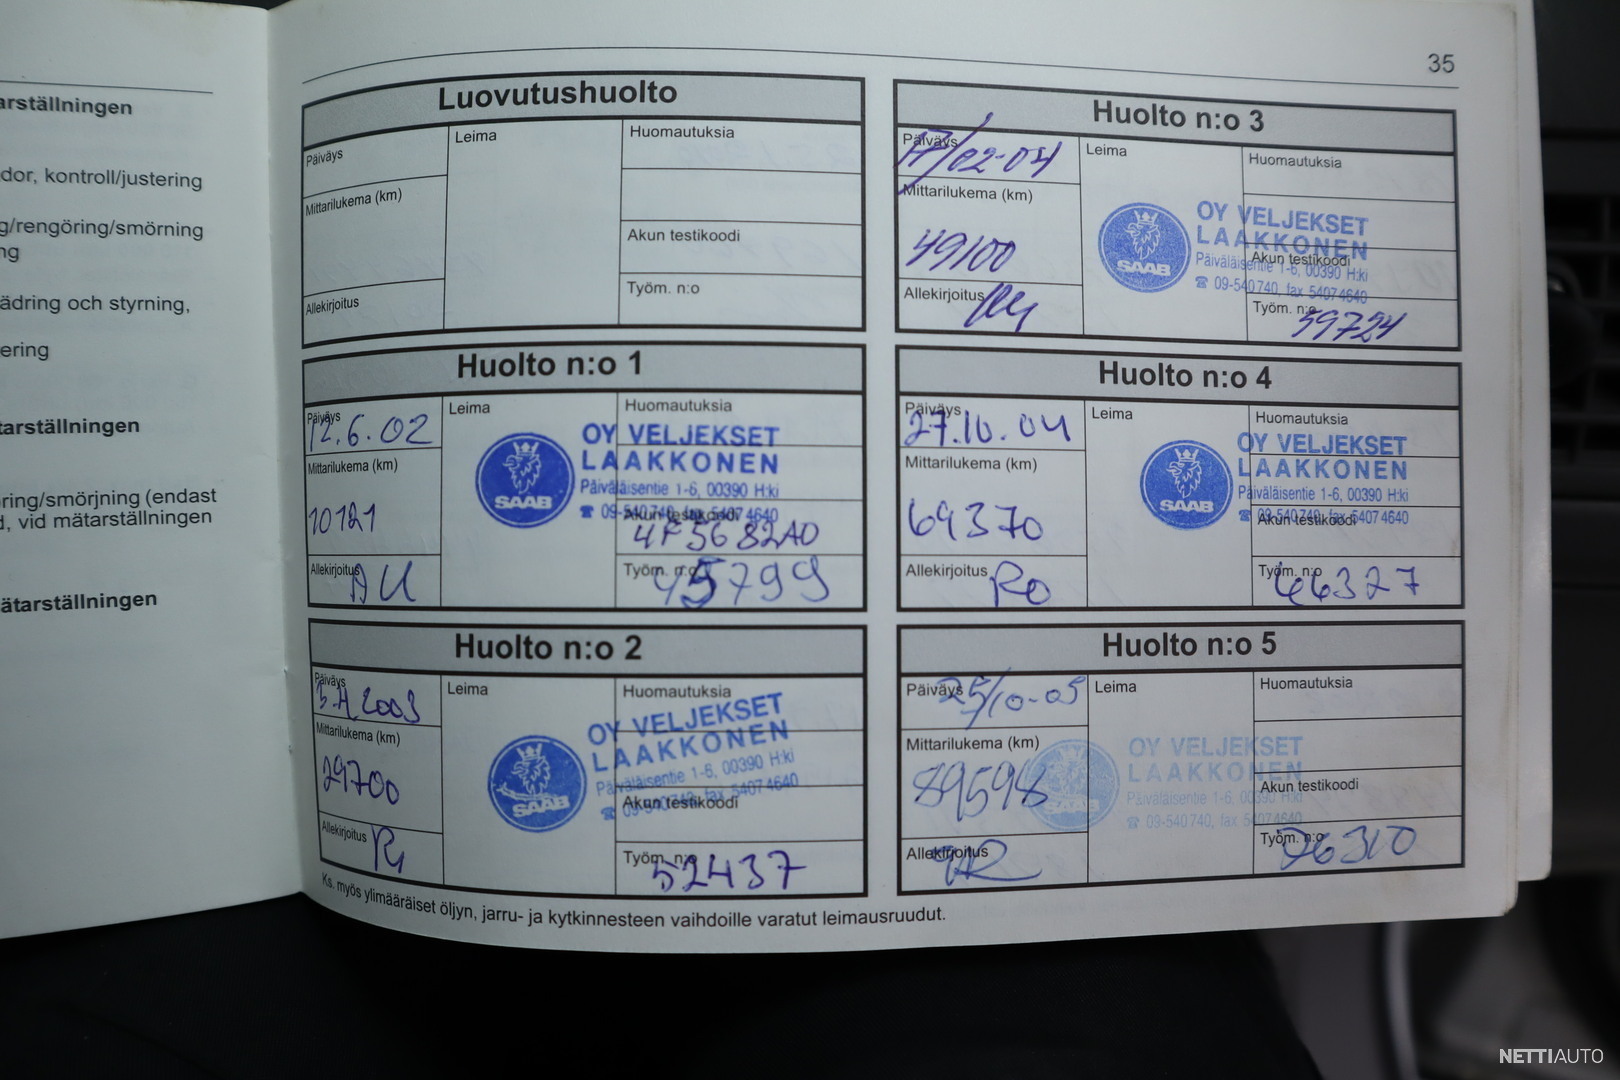 arställningen
dor, kontroll/justering
g/rengöring/smörning
ng
ädring och styrning,
ering
tarställningen
öring/smörjning (endast
d, vid mätarställningen
ätarställningen
35
Luovutushuolto
Päiväys
Leima
Huomautuksia
Mittarilukema (km)
Akun testikoodi
Allekirjoitus
Työm. n:o
Huolto n:o 1
Päiväys
12.6.02
Leima
Huomautuksia
Mittarilukema (km)
10121
SAAB
OY VELJEKSET
LAAKKONEN
Päiväläisentie 1-6, 00390 H:ki
☎ 09-540 740, fax 5407 4640
Akun testikoodi
4F5682A0
Allekirjoitus
AU
Työm. n:o
45799
Huolto n:o 2
Päiväys
Leima
Huomautuksia
Mittarilukema (km)
29700
SAAB
OY VELJEKSET
LAAKKONEN
Päiväläisentie 1-6, 00390 H:ki
☎ 09-540 740, fax 5407 4640
Akun testikoodi
Allekirjoitus
Työm. n:o
52437
Ks. myös ylimääräiset öljyn, jarru- ja kytkinnesteen vaihdoille varatut leimausruudut.
Huolto n:o 3
Päiväys
17/02-04
Leima
Huomautuksia
Mittarilukema (km)
49100
SAAB
OY VELJEKSET
LAAKKONEN
Päiväläisentie 1-6, 00390 H:ki
☎ 09-540 740, fax 5407 4640
Akun testikoodi
Allekirjoitus
Työm. n:o
59724
Huolto n:o 4
Päiväys
27.10.04
Leima
Huomautuksia
Mittarilukema (km)
69370
SAAB
OY VELJEKSET
LAAKKONEN
Päiväläisentie 1-6, 00390 H:ki
☎ 09-540 740, fax 5407 4640
Akun testikoodi
Allekirjoitus
Ro
Työm. n:o
66327
Huolto n:o 5
Päiväys
25/10-05
Leima
Huomautuksia
Mittarilukema (km)
89598
SAAB
OY VELJEKSET
LAAKKONEN
Päiväläisentie 1-6, 00390 H:ki
☎ 09-540 740, fax 5407 4640
Akun testikoodi
Allekirjoitus
Työm. n:o
76310
NETTIAUTO